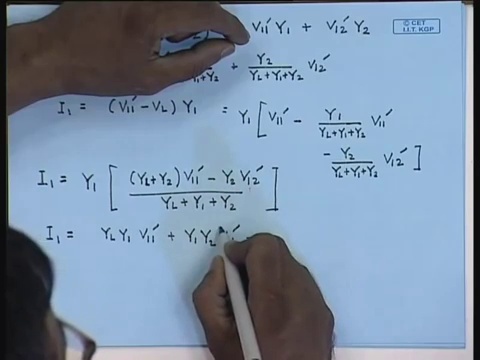 V₁₁′ Y₁ + V₁₂′ Y₂
© CET
I.I.T. KGP
Y₁+Y₂ + Y₂/(Y_L+Y₁+Y₂) V₁₂′
I₁ = (V₁₁′ − V_L) Y₁ = Y₁ [ V₁₁′ − Y₁/(Y_L+Y₁+Y₂) V₁₁′
− Y₂/(Y_L+Y₁+Y₂) V₁₂′ ]
I₁ = Y₁ [ ((Y_L+Y₂) V₁₁′ − Y₂ V₁₂′)/(Y_L + Y₁ + Y₂) ]
I₁ = Y_L Y₁ V₁₁′ + Y₁ Y₂